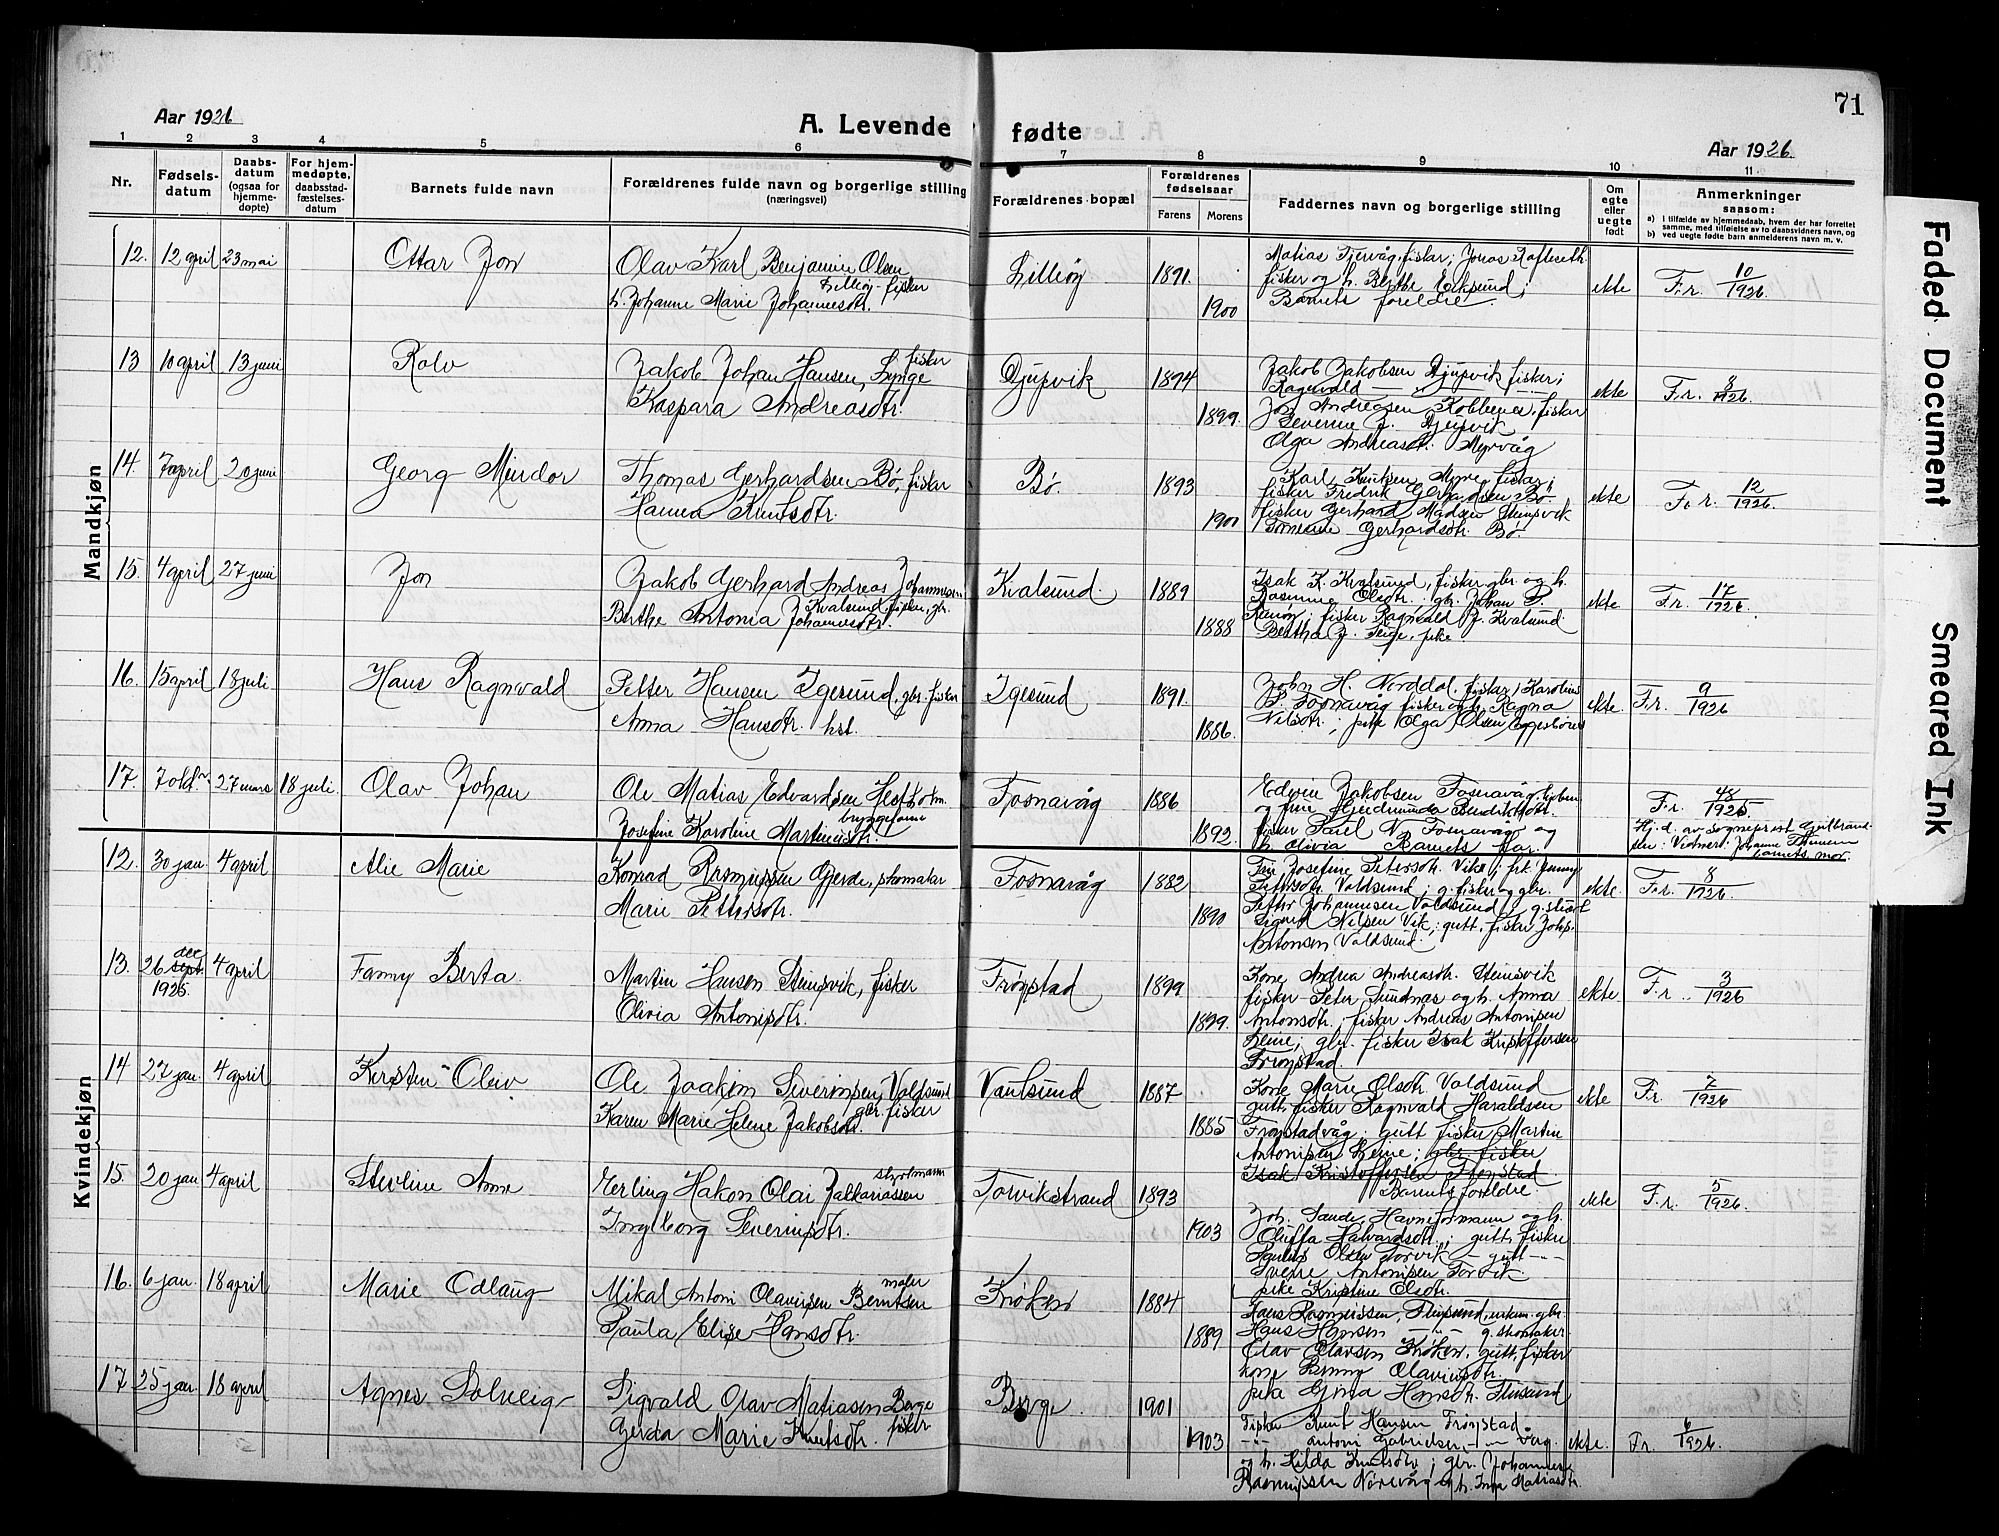 71
Aar 1926
A. Levende fødte
Aar 1926.
1 2 3 4 5 6 7 8 9 10 11
Nr.
Fødsels-
datum
Daabs-
datum
(ogsaa for
hjemme-
døpte)
For hjem-
medøpte,
daabsstad-
fæstelses-
datum
Barnets fulde navn
Forældrenes fulde navn og borgerlige stilling
(næringsvei)
Forældrenes bopæl
Forældrenes
fødselsaar
Farens Morens
Faddernes navn og borgerlige stilling
Om
egte
eller
uegte
født
Anmerkninger
saasom:
a) I tilfælde av hjemmedaab, hvem der har forrettet
samme, med tilføielse av to daabsvidners navn, og
b) ved uegte fødte barn anmelderens navn m. v.
Mandkjøn
12. 12 april 23 mai Ottar Jon
Olav Karl Benjamin Olsen
Lillеøy fisker
h. Johanne Marie Johannesdtr.
Lilleøy 1891. 1900
fisker og h. Berthe Eiksund;
Barnets foreldre.
ekte F.r. 10/1926.
13 10 april 13 juni Rolv
Jakob Johan Hansen, Lynge fisker
Kaspara Andreasdtr.
Djupvik 1894 1899.
Jakob Jakobsen Djupvik fisker;
Ragnvald — " —
Jon Andreasen Kobbenes, fisker
Severine J. Djupvik
Olga Andreasdt. Myrvåg
ekte F.r. 8/1926.
14. 7 april 20 juni Georg Mindor
Thomas Gerhardsen Bø, fisker
Hanna Knutsdtr.
Bø. 1893 1901
Karl Knutsen Myre fisker;
fisker Fredrik Gerhardsen Bø.
fisker Gerhard Madsen Steinsvik
Gerhardsdtr. Bø.
ekte F.r. 12/1926.
15. 4 april 27 juni Jon
Jakob Gerhard Andreas Johannessen
Kvalsund, fisker, gbr.
Berthe Antonia Johannesdtr.
Kvalsund. 1889 1888
Isak K. Kvalsund, fisker gbr og h.
Rasmine Olsdtr.; gbr. Johan P.
Remøy; fisker Ragnvald J. Kvalsund.
Bertha J. Teige, pike
ekte F.r. 17/1926.
16. 15 april 18 juli Hans Ragnvald
Petter Hansen Igesund, gbr. fisker
Anna Hansdtr. hst.
Igesund 1891. 1886.
John H. Norddal, fisker; Karolius
B. Fosnavåg fisker og h. Ragna
Nilsdtr.; pike Olga Olsen, Eggesbønes
ekte. F.r. 9/1926
17. 7 okt. 27 mars 18 juli. Olav Johan
Ole Matias Edvardsen Hestholm.
Josefine Karoline Martinusdtr.
Fosnavåg 1886 1892.
Edvin Jakobsen Fosnavåg,
fisker Parel N. Fosnavåg og
h. Olivia Barnets far.
F.r. 48/1925.
Hj.d. av sogneprest Gulbrand-
sen: Vidner: Johanne
barnets mor.
Kvindekjøn
12. 30 jan. 4 april Alie Marie
Konrad Rasmussen Gjerde, skomaker
Marie Pettersdtr.
Fosnavåg 1882 1890
Frk. Josefine Petersdtr. Vik; frk Jenny
Petersdtr. Voldsund; g. fisker og gbr.
Petter Johannesen Voldsund;
Sigurd Nilsen Vik; gutt, fisker Johs.
Antonsen Voldsund.
ekte. F.r. 8/1926.
13. 26 dec sept. 1925 4 april Fanny Berta.
Martin Hansen Steinsvik, fisker
Olivia Antonsdtr.
Frøystad 1899 1899.
Kone Andrea Andreasdtr. Steinsvik
fisker Peter Sundnæs og h. Anna
Antonsdtr.; fisker Andreas Antonsen
Leine; gbr. fisker Isak Kristoffersen
Frøystad.
ekte F.r. 3/1926
14 27 jan. 4 april Kirsten Oleiv
Ole Joakim Severinsen, Voldsund
gbr. fisker
Karen Marie Helene Jakobsdtr.
Vaulsund 1887 1885
Kone Marie Olsdtr. Voldsund
gutt, fisker Ragnvald Haraldsen
Frøystadvåg; gutt fisker Martin
Antonsen Leine; gbr. fisker
Isak Kristoffersen Frøystad
Barnets foreldre.
ekte F.r. 7/1926
15. 20 jan 4 april Sterline Anne
Erling Hakon Olai Zakkariassen
styrmann
Ingeborg Severinsdtr.
Torvikstrand 1893 1903
Joh. Sande, Havneformann og h.
Oluffa Halvardsdtr.; gutt, fisker
Paulus Olsen Torvik — gutt -"-
Sverre Antonsen Torvik.
pike Kristine Olsdtr.
ekte F.r. 5/1926.
16. 6 jan. 18 april Marie Odlaug
Mikal Antoni Olavissen Berntsen
maler
Paula Elise Hansdtr.
Krøken 1884 1889
Hans Rasmussen, Flusund, enkem. gbr.
Hans Hansen — " — g. skomaker
Olav Olavsen Krøken, gutt, fisker
kone Olaviusdtr.
pike Gina Hansdtr. Flusund
17 25 jan 18 april Agnes Solveig
Sigvald Olav Matiasen Berge
fisker
Gerda Marie Knutsdtr.
Berge 1901 1903
Fisker Knut Hansen Frøystad
-"- Antoni Gabrielsen, -"- Våg.
og h. Hilda Knutsdtr; gbr. Johannes
Rasmussen Norevåg og h. Inga Matiasdtr.
ekte. Fr. 6/1926.
Faded Document
Smeared Ink